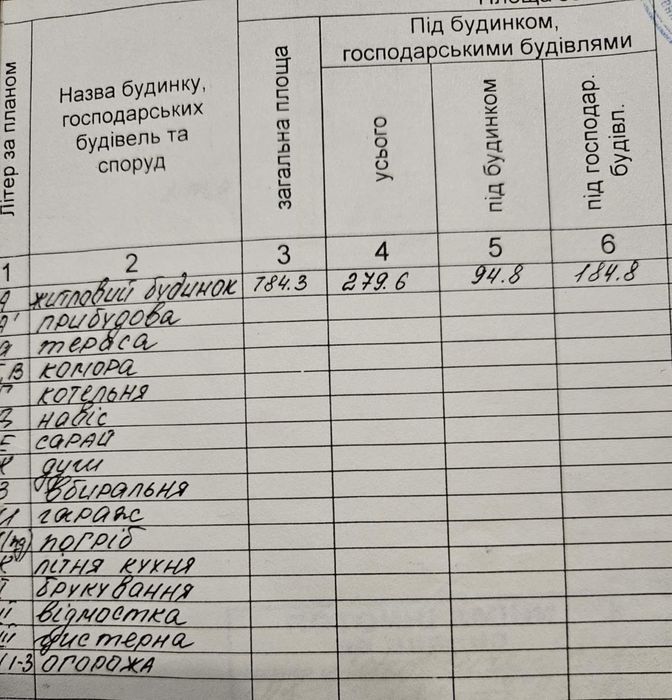 Під будинком,
господарськими будівлями
Літер за планом
Назва будинку,
господарських
будівель та
споруд
загальна площа
усього
під будинком
під господар.
будівл.
1 2 3 4 5 6
житловий будинок 784.3 279.6 94.8 184.8
прибудова
тераса
В комора
котельня
навіс
Е сарай
душ
вбиральня
гараж
погріб
літня кухня
брукування
відмостка
цистерна
1-3 огорожа